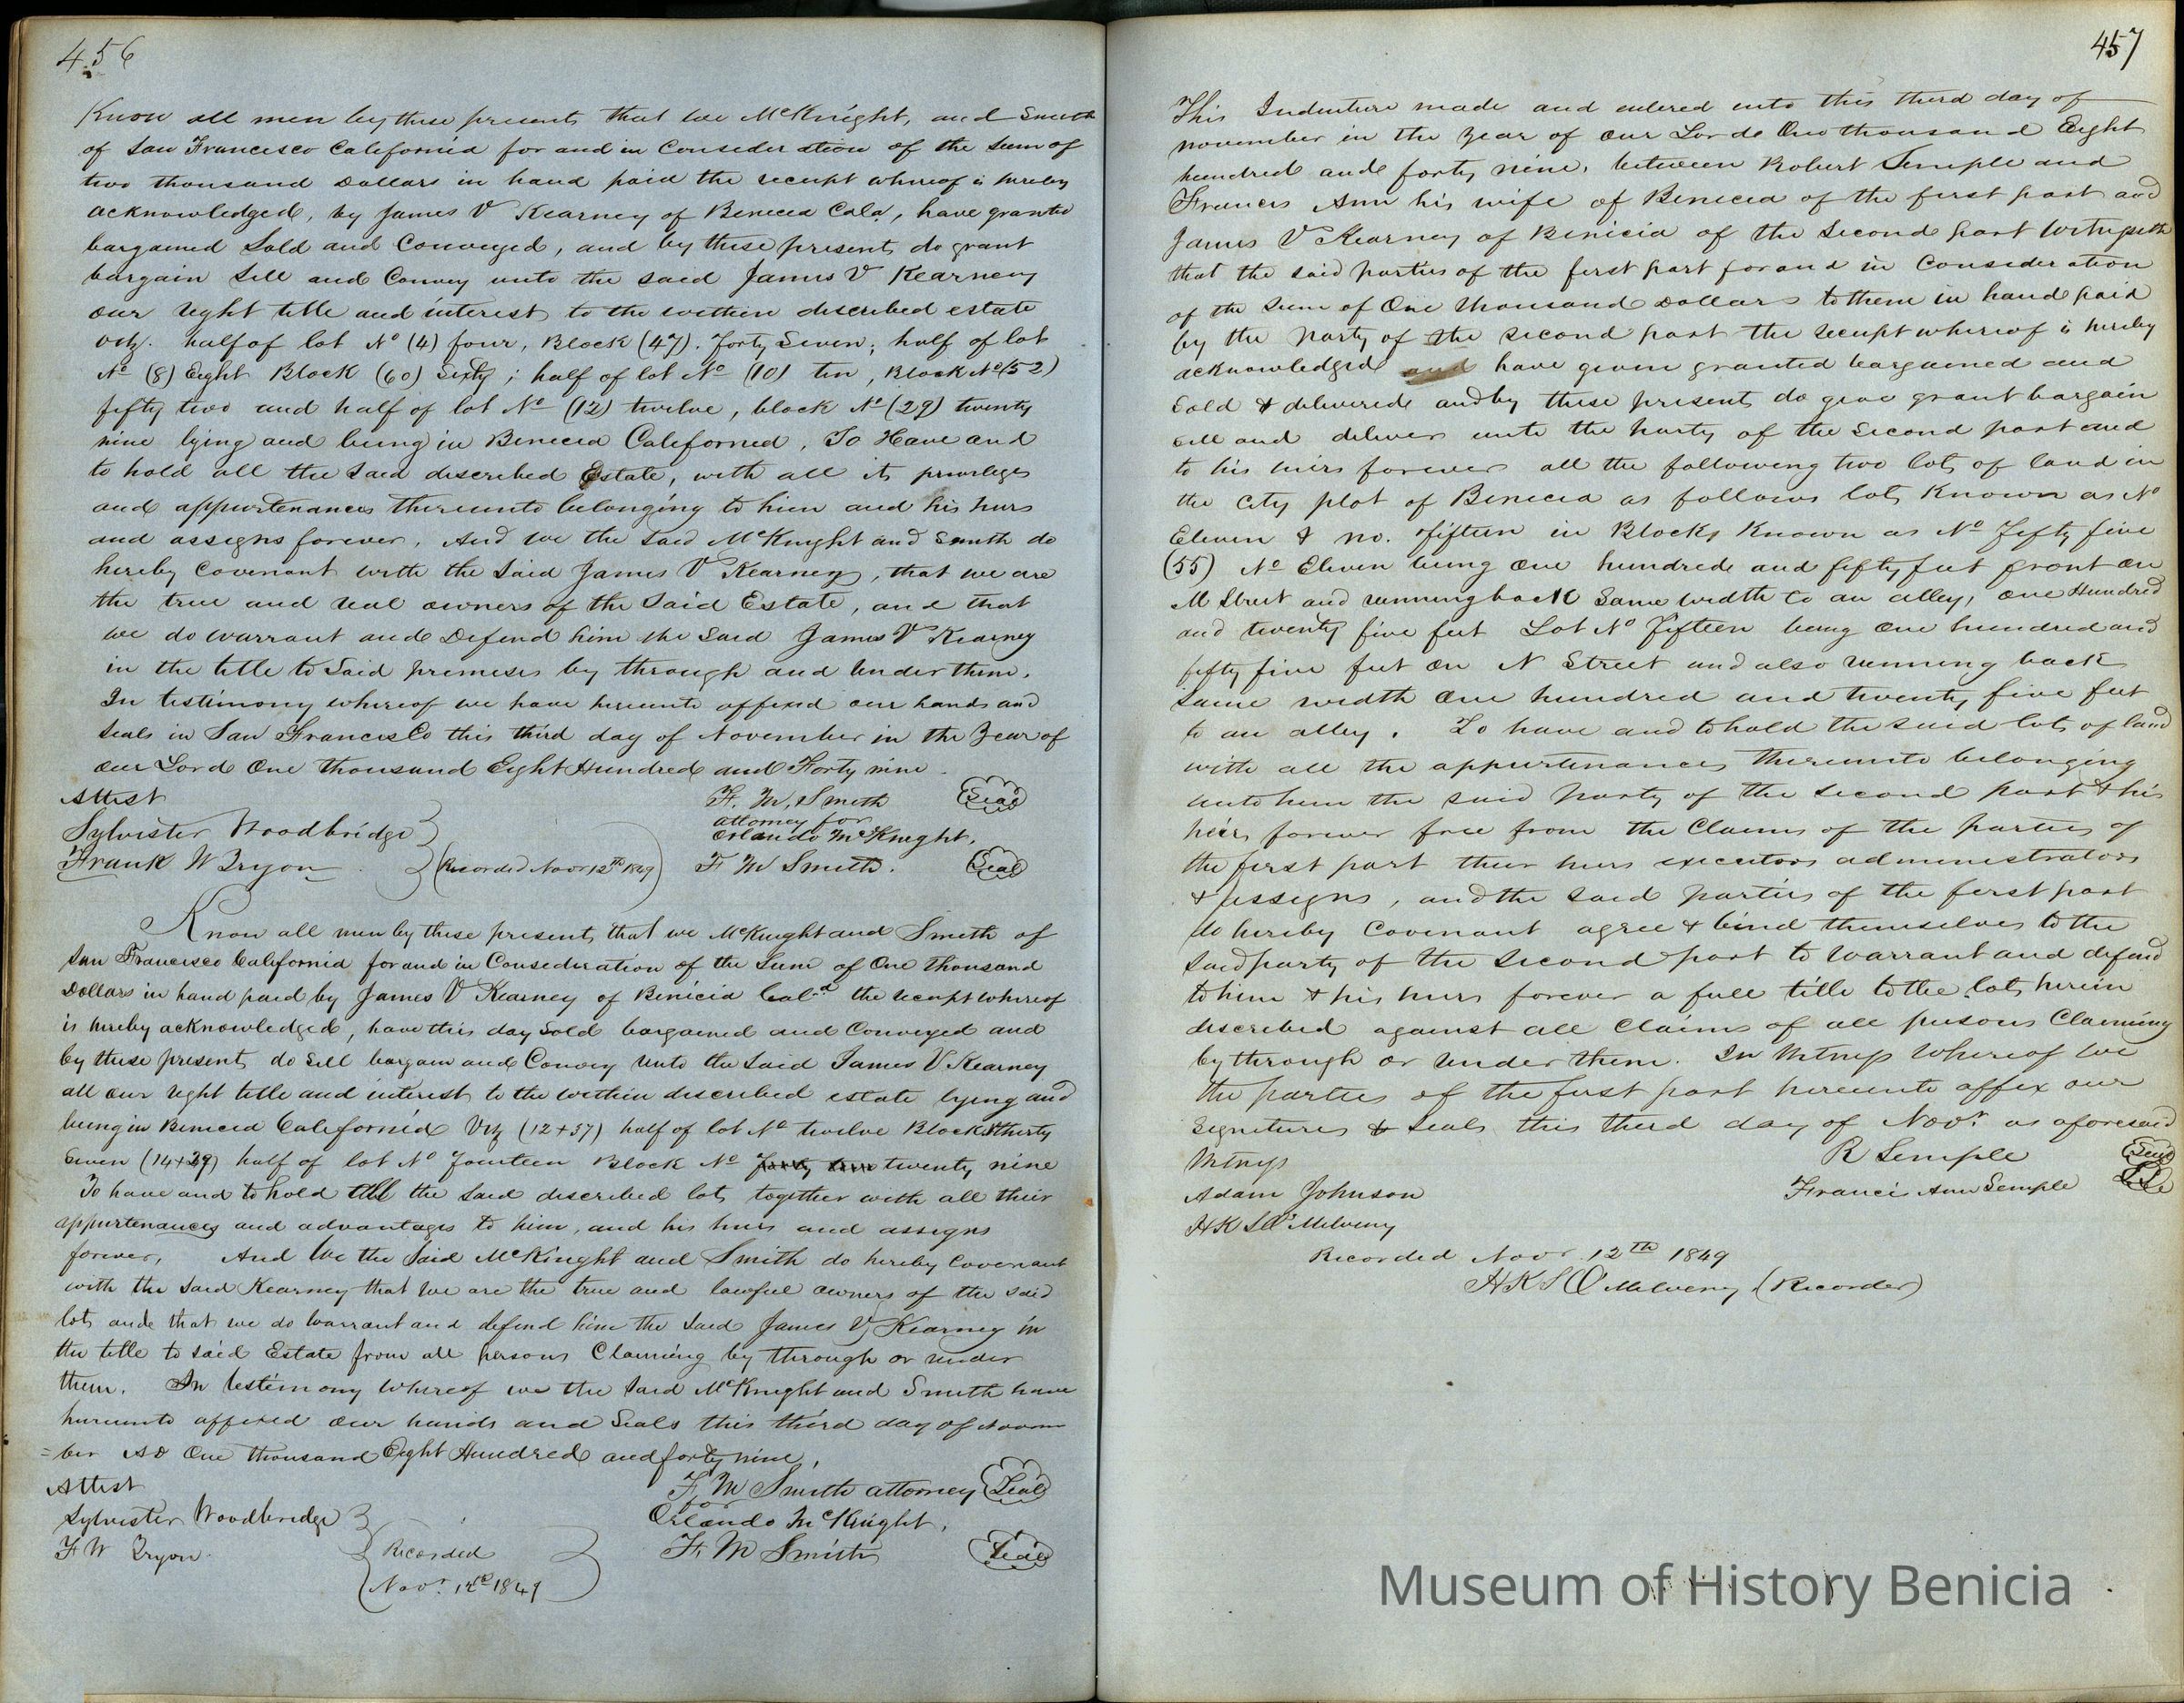 456
Know all men by these presents that we McKnight, and Smith
of San Francisco California for and in Consideration of the Sum of
two thousand Dollars in hand paid the receipt whereof is hereby
acknowledged, by James V Kearney of Benicia Cala, have granted
bargained Sold and Conveyed, and by these presents do grant
bargain Sell and Convey unto the said James V Kearney
our right title and interest to the within described estate
viz. half of lot No (4) four, Block (47). forty Seven; half of lot
No (8) Eight Block (60) Sixty; half of lot No (10) ten, Block No (52)
fifty two and half of lot No (12) twelve, block No (29) twenty
nine lying and being in Benicia California, To Have and
to hold all the said described Estate, with all its privileges
and appurtenances thereunto belonging to him and his heirs
and assigns forever. And we the said McKnight and Smith do
hereby Covenant with the Said James V Kearney, that we are
the true and real owners of the Said Estate, and that
we do warrant and Defend him the Said James V Kearney
in the title to Said premises by through and Under them.
In testimony whereof we have hereunto affixed our hands and
Seals in San Francisco this third day of November in the Year of
our Lord One thousand Eight Hundred and Forty nine.
Attest F. M, Smith Seal
attorney for
Sylvester Woodbridge Orlando McKnight.
Frank W Tryon (Recorded Novr 12th 1849) F M Smith. Seal
Know all men by these presents that we McKnight and Smith of
San Francisco California for and in Consideration of the Sum of One thousand
Dollars in hand paid by James V Kearney of Benicia Cala the receipt whereof
is hereby acknowledged, have this day Sold bargained and Conveyed and
by these presents do Sell bargain and Convey unto the Said James V Kearney
all our right title and interest to the within described estate lying and
being in Benicia California Viz (12+37) half of lot No twelve Block thirty
Seven (14+29) half of lot No Fourteen Block No forty two twenty nine
To have and to hold all the Said described lots together with all their
appurtenances and advantages to him, and his heirs and assigns
forever, And We the Said McKnight and Smith do hereby Covenant
with the Said Kearney that we are the true and lawful owners of the said
lots and that we do warrant and defend him the Said James V Kearney in
the title to Said Estate from all persons Claiming by through or under
them. In testimony Whereof we the Said McKnight and Smith have
hereunto affixed our hands and Seals this third day of Novem
=ber AD One thousand Eight Hundred and forty nine,
Attest F, M Smith attorney Seal
for
Sylvester Woodbridge Orlando McKnight.
F W Tryon. Recorded F. M Smith Seal
Novr. 12th 1849
457
This Indenture made and entered into this third day of
november in the Year of our Lord One thousand Eight
hundred and forty nine, between Robert Semple and
Francis Ann his wife of Benicia of the first part and
James V Kearney of Benicia of the Second part Witnesseth
that the said parties of the first part for and in Consideration
of the Sum of One thousand Dollars to them in hand paid
by the Party of the second part the receipt whereof is hereby
acknowledged and have given granted bargained and
Sold & delivered and by these presents do give grant bargain
sell and deliver unto the party of the Second part and
to his heirs forever all the following two lots of land in
the City plot of Benicia as follows lots known as No
Eleven & no. fifteen in Blocks Known as No Fifty five
(55) No Eleven being One hundred and fifty feet front on
M Street and running back Same width to an alley, One Hundred
and twenty five feet Lot No Fifteen being One hundred and
fifty five feet on N Street and also running back
Same width One hundred and twenty five feet
to an alley. To have and to hold the said lots of land
with all the appurtenances thereunto belonging
unto him the said party of the Second part & his
heirs forever free from the Claims of the parties of
the first part their heirs executors administrators
& assigns, and the said parties of the first part
do hereby Covenant agree & bind themselves to the
Said party of the Second part to Warrant and defend
to him & his heirs forever a full title to the lots herein
described against all Claims of all persons Claiming
by through or under them. In Witness Whereof we
the parties of the first part hereunto affix our
Signatures & Seals this third day of Novr. as aforesaid
Witness R Semple Seal
Adam Johnson Francis Ann Semple
H K S O'Melveny
Recorded Novr 12th 1849
H K S O'Melveny (Recorder)
Museum of History Benicia